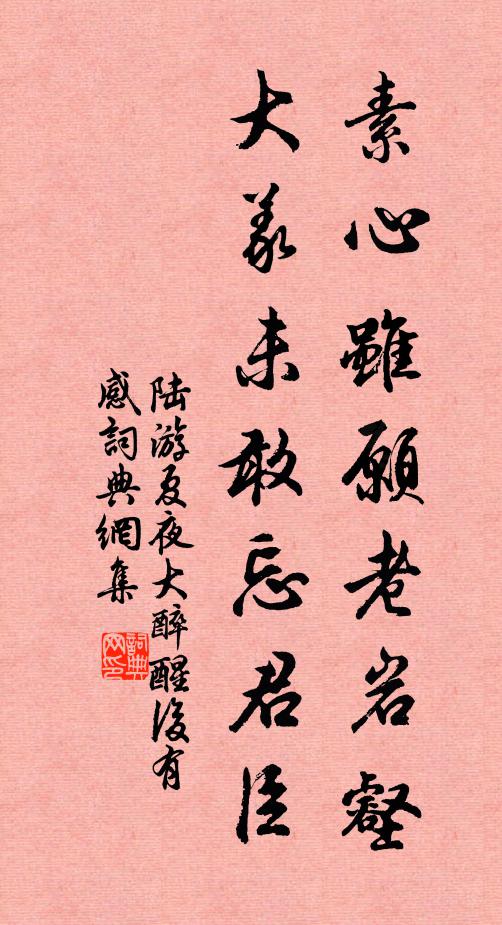 素心雖願老岩壑
大義未敢忘君臣
陆游夏夜大醉醒後有
感詞典網集
詞典网印